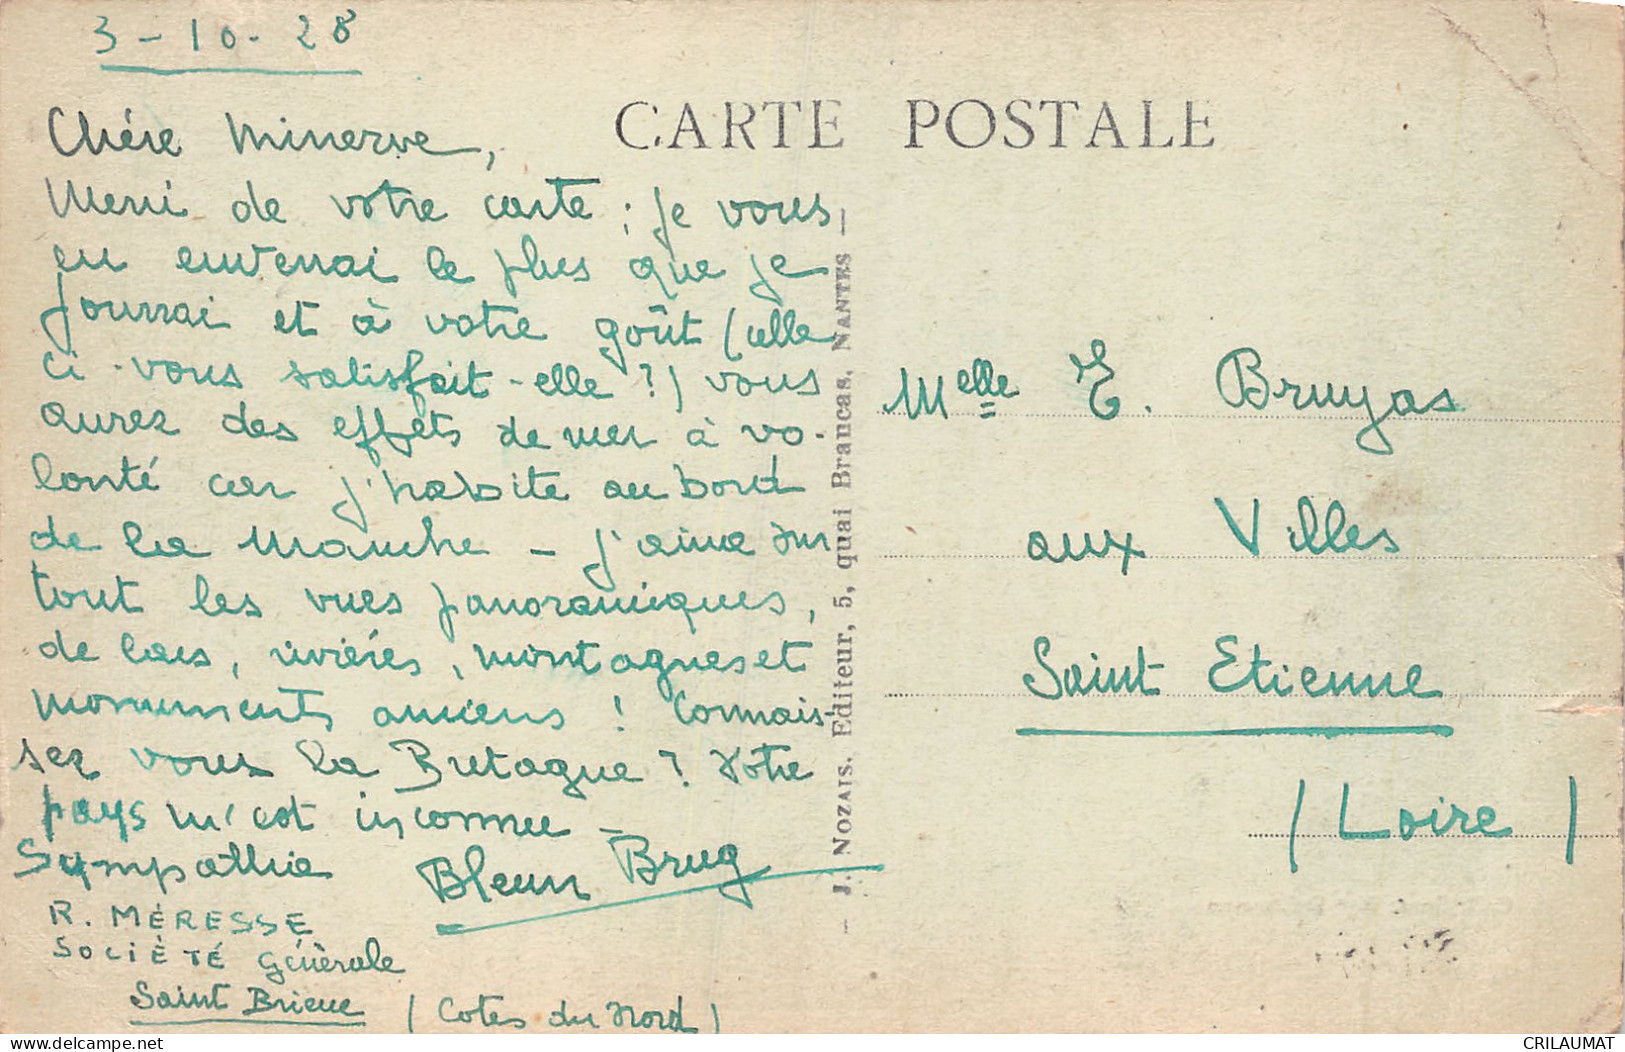 3-10-28
CARTE POSTALE
Chère Minerve,
Merci de votre carte ; je vous
en enverrai le plus que je
pourrai et à votre goût (celle
ci vous satisfait-elle ?) vous
aurez des effets de mer à vo-
lonté car j'habite au bord
de la Manche - j'aime sur
tout les vues panoramiques,
de lacs, rivières, montagnes et
monuments anciens ! Connais-
sez vous la Bretagne ? Votre
pays m'est inconnu -
Sympathie Bleun Brug
R. MÉRESSE
SOCIÉTÉ Générale
Saint Brieuc (Cotes du Nord)
- J. NOZAIS, Editeur, 5, quai Brancas, NANTES -
Melle E. Bruyas
aux Villes
Saint Etienne
(Loire)
CRILAUMAT